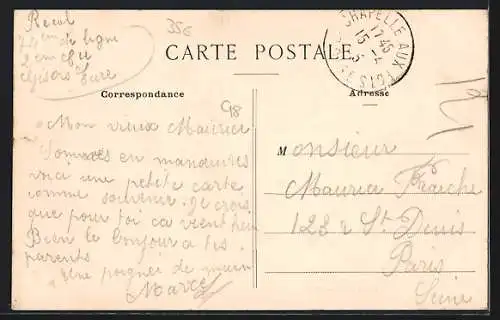 Recol
74 em de ligne
2 em Cie
Gisors Eure
35c
CARTE POSTALE
CHAPELLE AUX
17 45
15 -4
Correspondance
Adresse
C98
Mon vieux Maurice
Sommes en manœuvres
voici une petite carte
comme souvenir. Je crois
que pour toi ca vient
Bien le bonjour a tes
parents
Une poignée de main
Marcel
Monsieur
Maurice Fraiche
123 r St. Denis
Paris
Seine